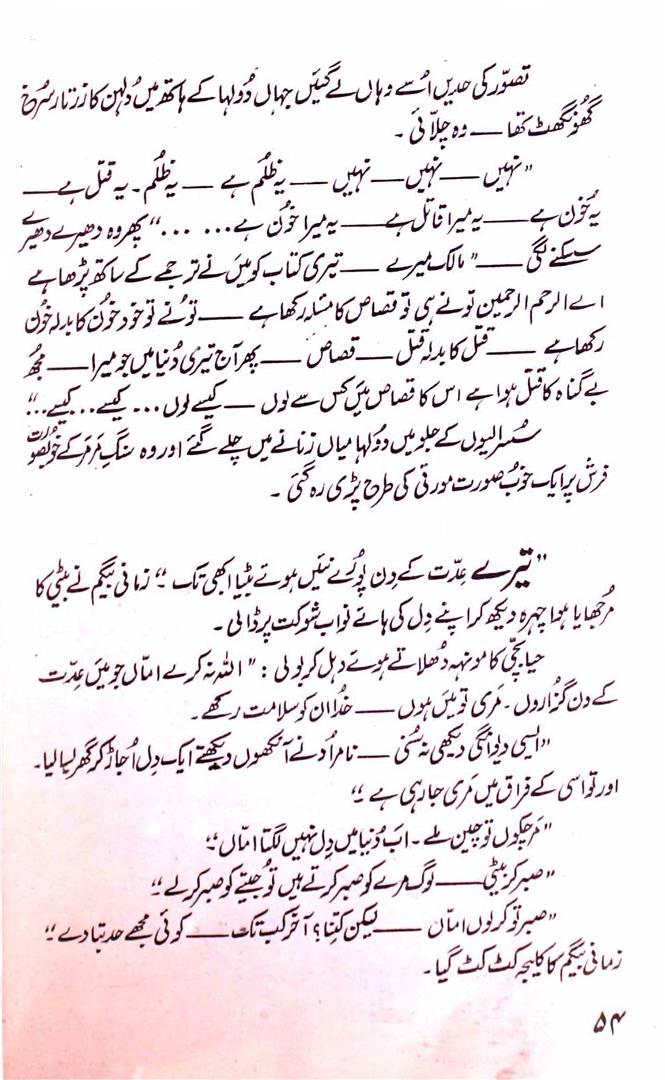 تصوّر کی حدیں اُسے وہاں لے گئیں جہاں دُولہا کے ہاتھ میں دُلہن کا زرتار سُرخ
گھُونگھٹ تھا — وہ چلّائی۔
”نہیں — نہیں — نہیں — یہ ظلُم ہے — یہ ظلُم۔ یہ قتل ہے —
یہ خُون ہے — یہ میرا قاتل ہے — یہ میرا خوُن ہے... ...“ پھر وہ دھیرے دھیرے
سِسکنے لگی — ”مالک میرے — تیری کتاب کو میَں نے ترجمے کے ساتھ پڑھا ہے
اے الرحم الرحمین تو نے ہی تو قصاص کا مسئلہ رکھا ہے — توُ نے تو خود خوُن کا بدلہ خوُن
رکھا ہے — قتل کا بدلہ قتل — قصاص — پھر آج تیری دُنیا میں جو میرا — مجھُ
بے گناہ کا قتل ہوا ہے اس کا قصاص میَں کس سے لوں — کیسے لوں... کیسے... کیسے...“
سُسرالیوں کے جلو میں دُولہا میاں زنانے میں چلے گئے اور وہ سنگِ مَرمَر کے خوبصُورت
فرش پر ایک خوبُ صورت مورتی کی طرح پڑی رہ گئی۔
”تیرے عِدّت کے دِن پوُرے نئیں ہوئے بٹیا ابھی تک“ زمانی بیگم نے بیٹی کا
مُرجھایا ہوا چہرہ دیکھ کر اپنے دِل کی ہائے نواب شوکت پر ڈالی۔
حیا بچّی کا مونہہ دھُلاتے ہوئے دہل کر بولی: ”اللہ نہ کرے امّاں جو میَں عِدّت
کے دن گزُاروں۔ مَری تو میَں ہوں — خُدا ان کو سلامت رکھے۔
”ایسی دیوانگی دیکھی نہ سُنی — نامراد نے آنکھوں دیکھتے ایک دِل اُجاڑ کر گھر بسا لیا۔
اور تو اسی کے فراق میں مَری جا رہی ہے“
”مَر چکوں تو چین ملے۔ اب دُنیا میں دِل نہیں لگتا امّاں“
”صبر کر بیٹی — لوگ مرے کو صبر کرتے ہیں توُ جیتے کو صبر کر لے“
”صبر تو کر لوں امّاں — لیکن کتِنا؟ آخر کب تک — کوئی مجھے حد بتا دے“
زمانی بیگم کا کلیجہ کٹ کٹ گیا۔
۵۴